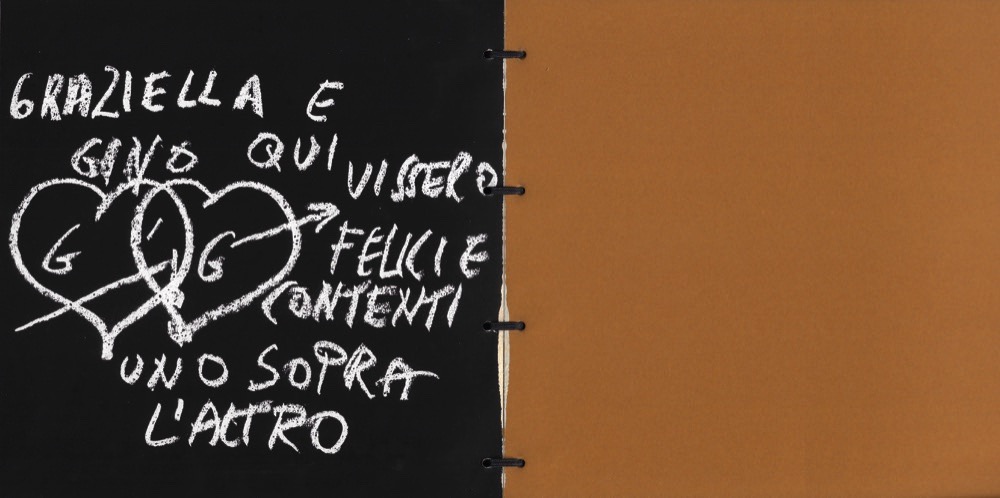 GRAZIELLA E
GINO QUI VISSERO
G G
FELICI E
CONTENTI
UNO SOPRA
L'ALTRO